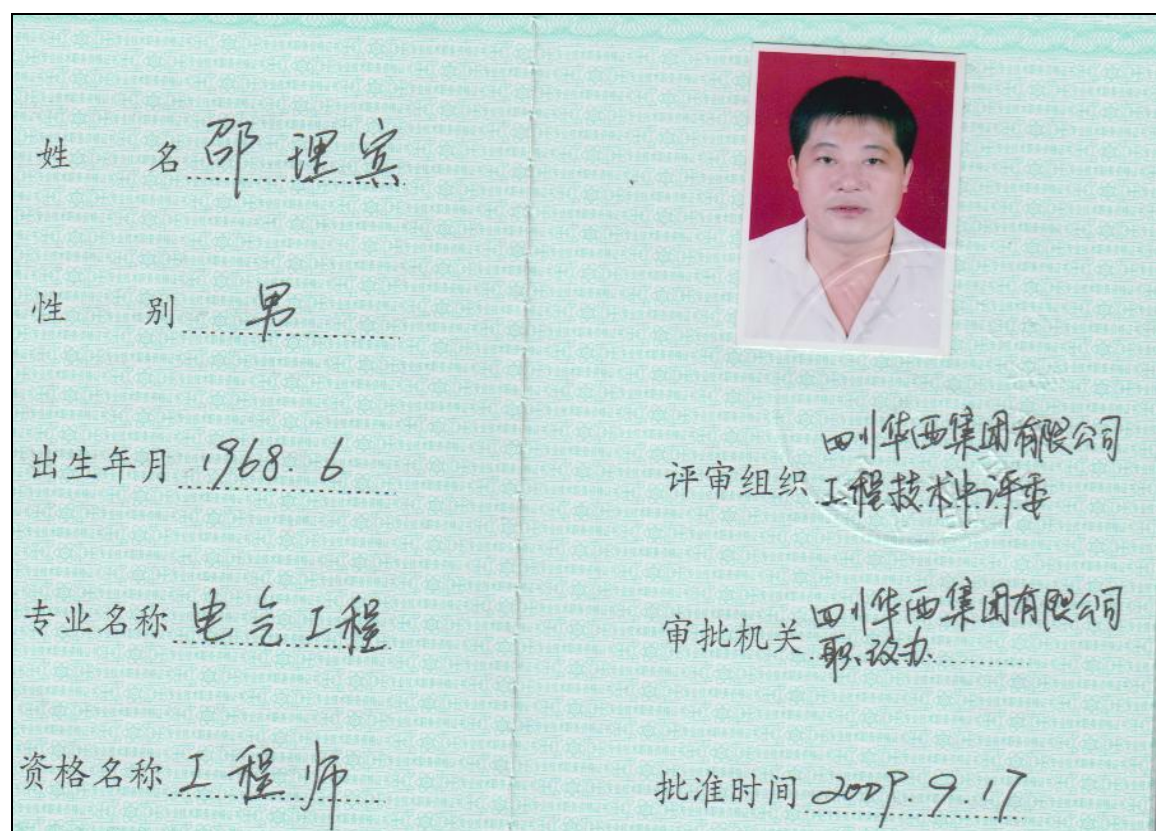 姓 名 邵理宾
性 别 男
出生年月 1968.6
专业名称 电气工程
资格名称 工程师
评审组织 四川华西集团有限公司
工程技术中评委
审批机关 四川华西集团有限公司
职改办
批准时间 2009 9 17